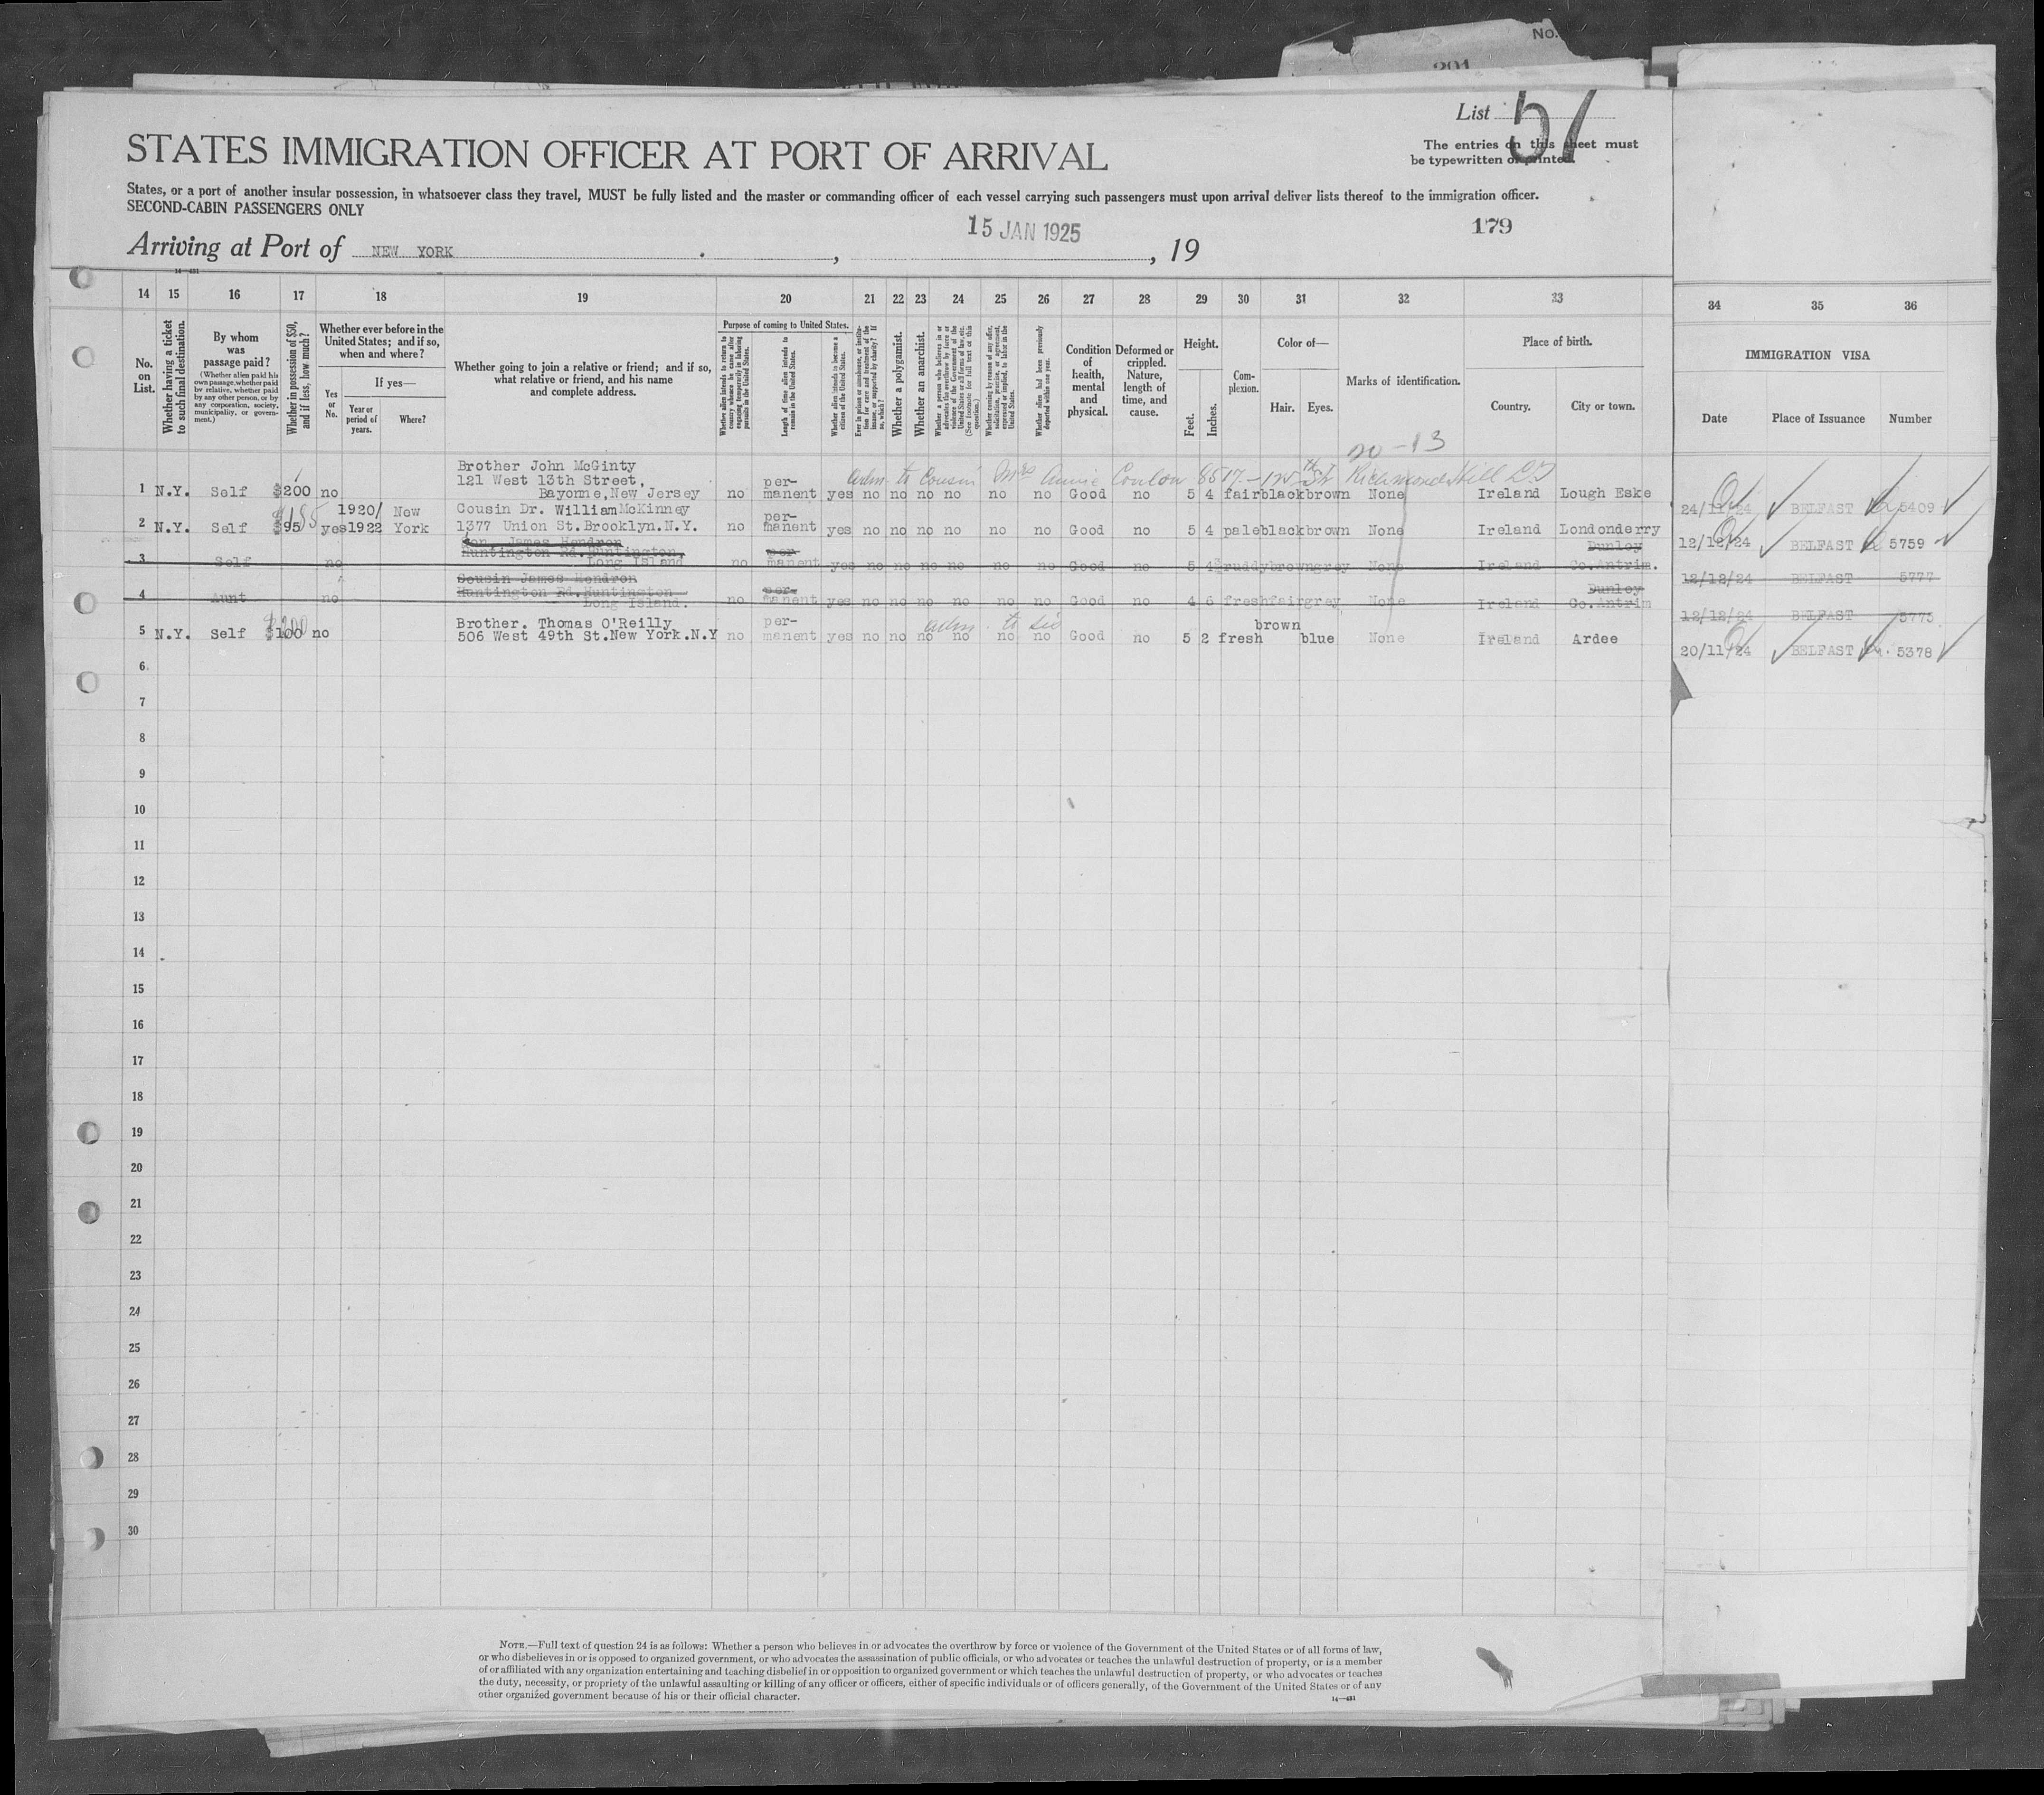 No.
201
List 51
STATES IMMIGRATION OFFICER AT PORT OF ARRIVAL
The entries on this sheet must
be typewritten or printed.
States, or a port of another insular possession, in whatsoever class they travel, MUST be fully listed and the master or commanding officer of each vessel carrying such passengers must upon arrival deliver lists thereof to the immigration officer.
SECOND-CABIN PASSENGERS ONLY
179
Arriving at Port of NEW YORK , 15 JAN 1925 , 19
14—431
14 15 16 17 18 19 20 21 22 23 24 25 26 27 28 29 30 31 32 33 34 35 36
No. on List.
Whether having a ticket to such final destination.
By whom was passage paid?
(Whether alien paid his own passage, whether paid by relative, whether paid by any other person, or by any corporation, society, municipality, or government.)
Whether in possession of $50, and if less, how much?
Whether ever before in the United States; and if so, when and where?
Yes or No.
If yes—
Year or period of years.
Where?
Whether going to join a relative or friend; and if so, what relative or friend, and his name and complete address.
Purpose of coming to United States.
Whether alien intends to return to country whence he came after engaging temporarily in laboring pursuits in the United States.
Length of time alien intends to remain in the United States.
Whether alien intends to become a citizen of the United States.
Ever in prison or almshouse, or institution for care and treatment of the insane, or supported by charity? If so, which?
Whether a polygamist.
Whether an anarchist.
Whether a person who believes in or advocates the overthrow by force or violence of the Government of the United States or all forms of law, etc. (See footnote for full text of this question.)
Whether coming by reason of any offer, solicitation, promise, or agreement, expressed or implied, to labor in the United States.
Whether alien had been previously deported within one year.
Condition of health, mental and physical.
Deformed or crippled. Nature, length of time, and cause.
Height.
Feet.
Inches.
Complexion.
Color of—
Hair.
Eyes.
Marks of identification.
Place of birth.
Country.
City or town.
IMMIGRATION VISA
Date
Place of Issuance
Number
20-13
Brother John McGinty
121 West 13th Street,
adm. to Cousin Mrs Annie Conlon 8517-125th St Richmond Hill L.I
1 N.Y. Self $200 no Bayonne, New Jersey no per-manent yes no no no no no no Good no 5 4 fair black brown None Ireland Lough Eske 24/11/24 BELFAST 5409
Cousin Dr. William McKinney
2 N.Y. Self $95 $185 yes 1920/1922 New York 1377 Union St. Brooklyn. N.Y. no per-manent yes no no no no no no Good no 5 4 pale black brown None Ireland Londonderry 12/12/24 BELFAST 5759
Son James Hendron
Huntington Rd. Huntington,
3 Self no Long Island no per-manent yes no no no no no no Good no 5 4 ruddy brown grey None Ireland Dunloy Co. Antrim. 12/12/24 BELFAST 5777
Cousin James Hendron
Huntington Rd. Huntington
4 Aunt no Long Island. no per-manent yes no no no no no no Good no 4 6 fresh fair grey None Ireland Dunloy Co. Antrim 12/12/24 BELFAST 5775
Brother. Thomas O'Reilly
adm. to Sis
5 N.Y. Self $100 $200 no 506 West 49th St. New York. N.Y no per-manent yes no no no no no no Good no 5 2 fresh brown blue None Ireland Ardee 20/11/24 BELFAST 5378
6
7
8
9
10
11
12
13
14
15
16
17
18
19
20
21
22
23
24
25
26
27
28
29
30
NOTE.—Full text of question 24 is as follows: Whether a person who believes in or advocates the overthrow by force or violence of the Government of the United States or of all forms of law,
or who disbelieves in or is opposed to organized government, or who advocates the assassination of public officials, or who advocates or teaches the unlawful destruction of property, or is a member
of or affiliated with any organization entertaining and teaching disbelief in or opposition to organized government or which teaches the unlawful destruction of property, or who advocates or teaches
the duty, necessity, or propriety of the unlawful assaulting or killing of any officer or officers, either of specific individuals or of officers generally, of the Government of the United States or of any
other organized government because of his or their official character.
14—431